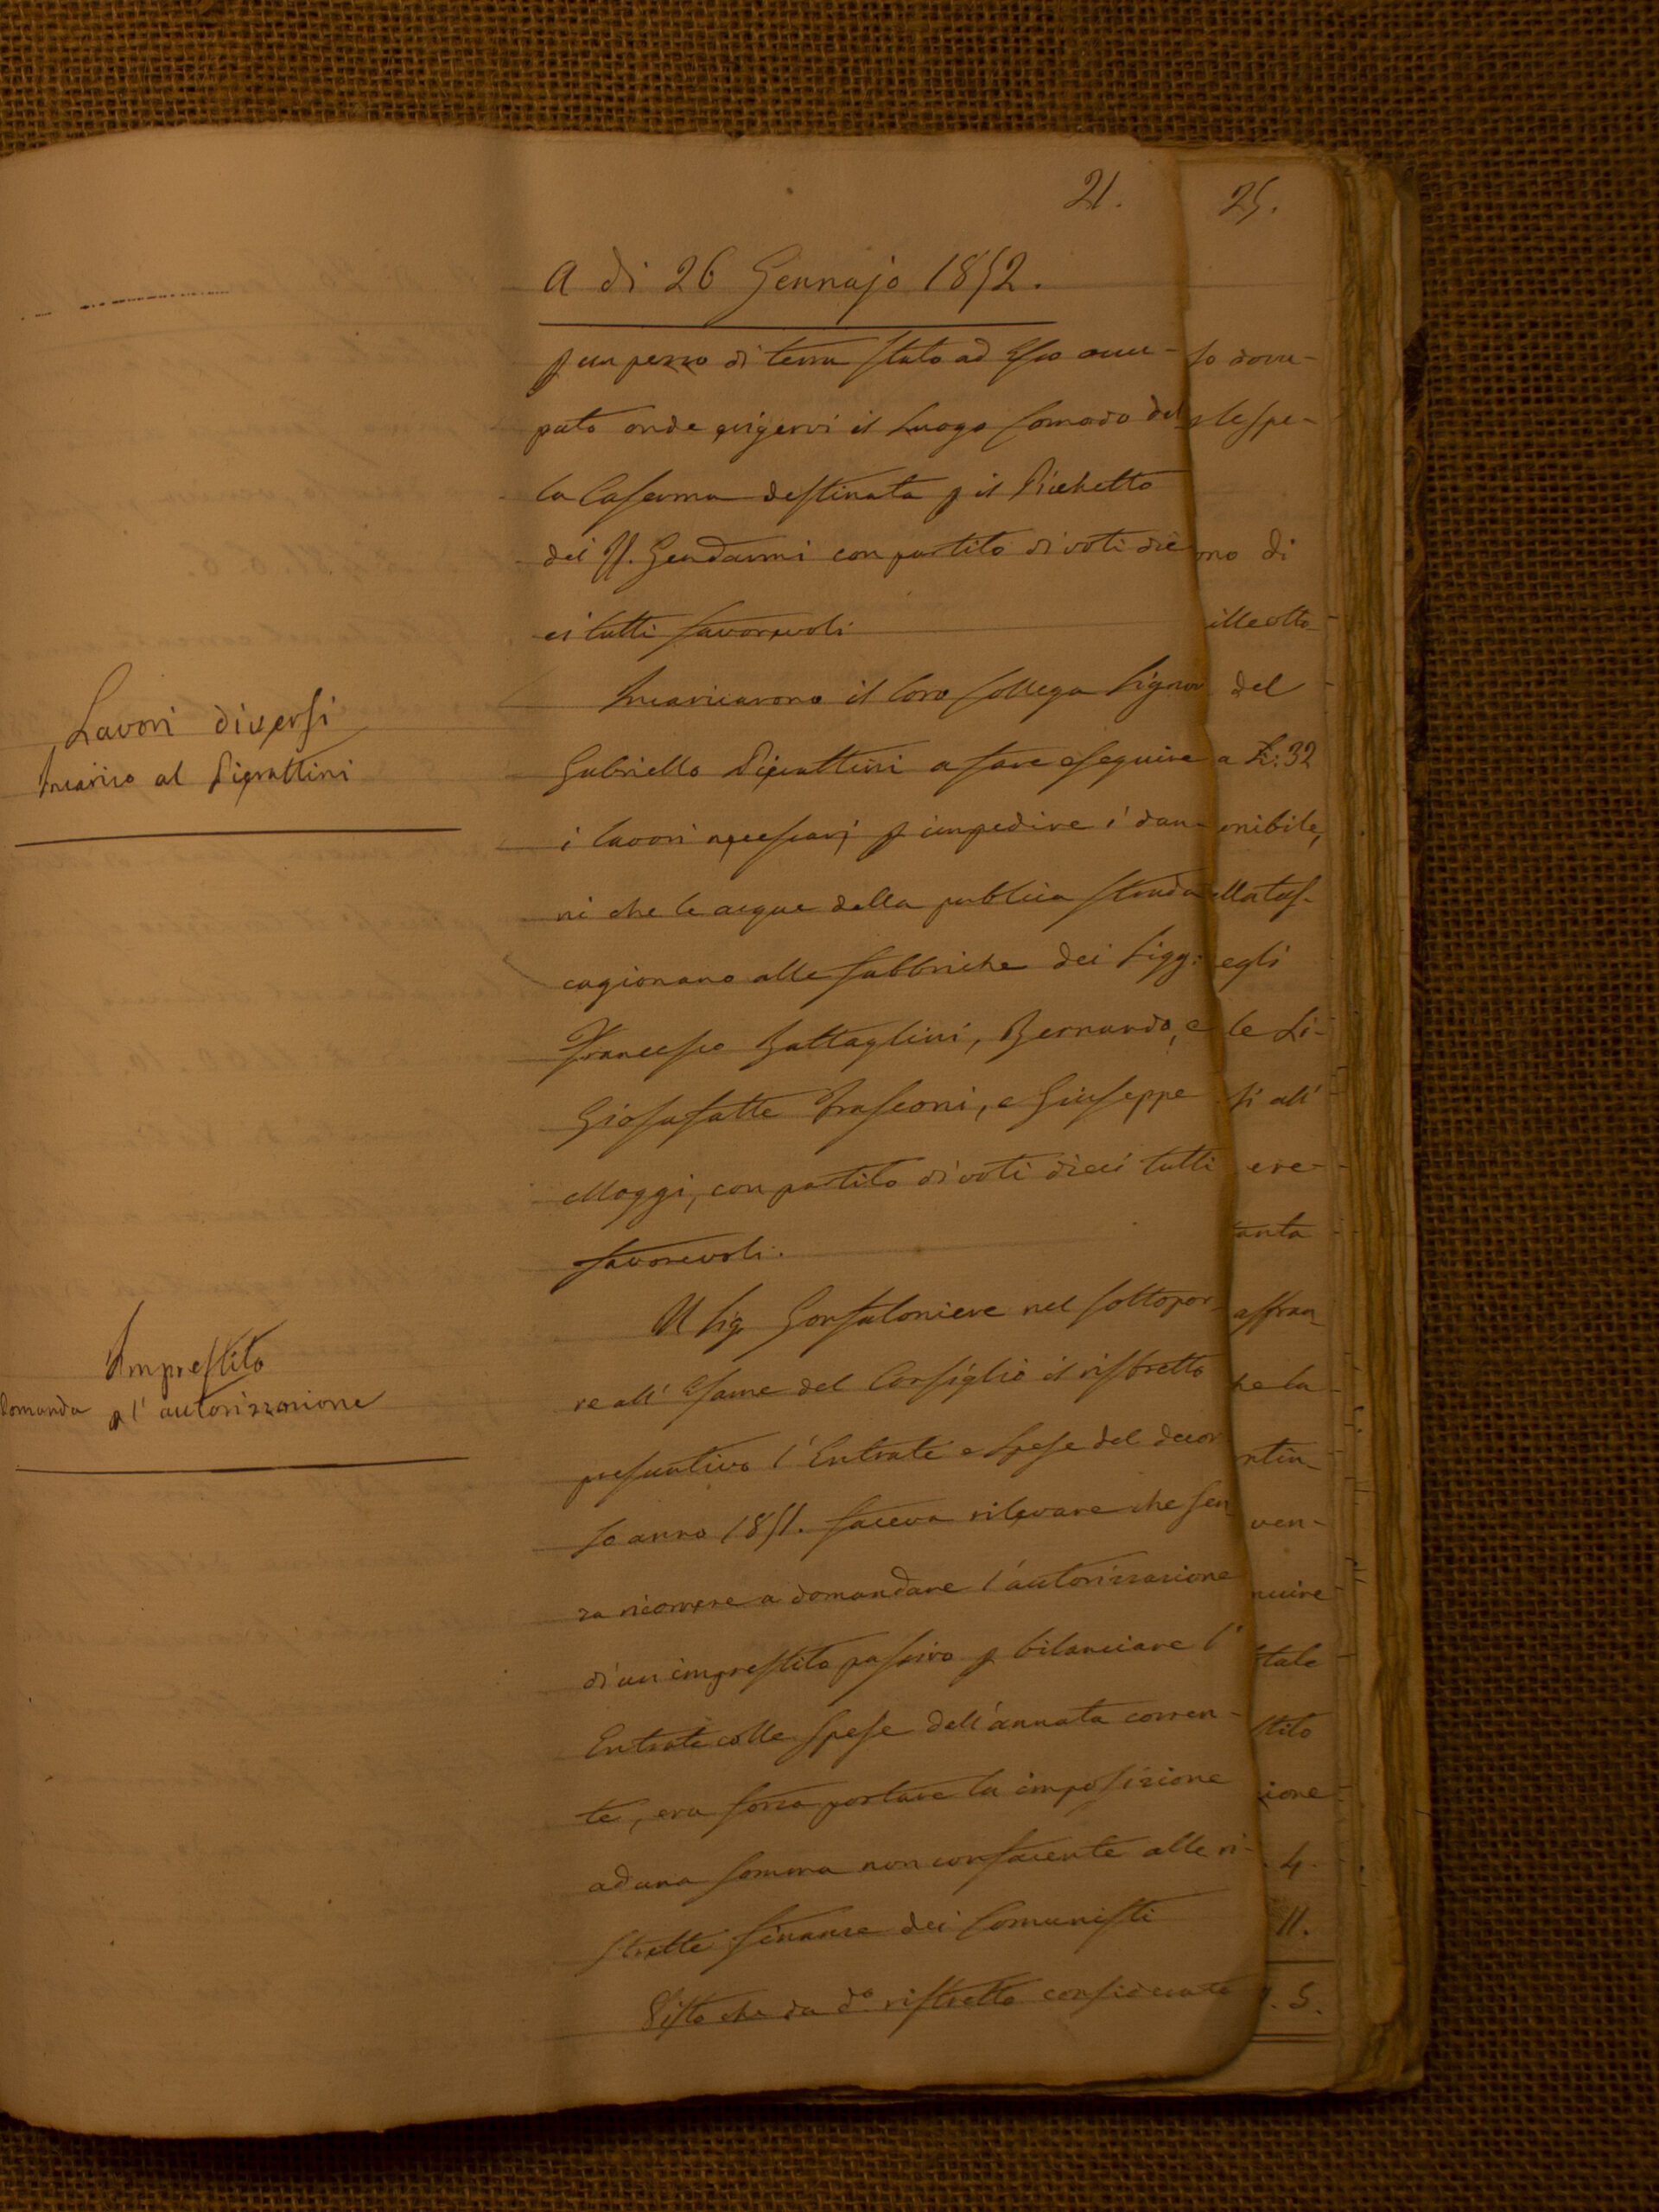 21.
25.
A dì 26 Gennajo 1852.
p un pezzo di terra stato ad Esso occu-
pato onde erigervi il Luogo Comodo del
la Caserma destinata p il Picchetto
dei II. Gendarmi con partito di voti die
ci tutti favorevoli
Lavori diversi
Incarico al Pierattini
Incaricarono il loro Collega Signor
Gabriello Pierattini a fare eseguire
i lavori necessarj p impedire i dan-
ni che le acque della publica strada
cagionano alle fabbriche dei Sigg:
Francesco Battaglini, Bernardo, e
Giosafatte Frasconi, e Giuseppe
Maggi, con partito di voti dieci tutti
favorevoli.
Imprestito
Domanda p l'autorizzazione
Il Sig. Gonfaloniere nel sottopor-
re all' Esame del Consiglio il ristretto
presuntivo l'Entrate e Spese del decor
so anno 1851. faceva rilevare che sen
za ricorrere a domandare l'autorizzazione
di un imprestito passivo p bilanciare l'
Entrate colle Spese dell'annata corren-
te, era forza portare la imposizione
ad una somma non confacente alle ri-
strette finanze dei Comunisti
Visto che da do. ristretto considerato
so dovu-
p le spe-
ono di
ille otto-
del
a £: 32
onibile,
ella tas-
egli
le Li-
si all'
ere-
tanta
affran-
he la
ntin-
ven-
nuire
tale
stito
ione
4.
11.
. 5.